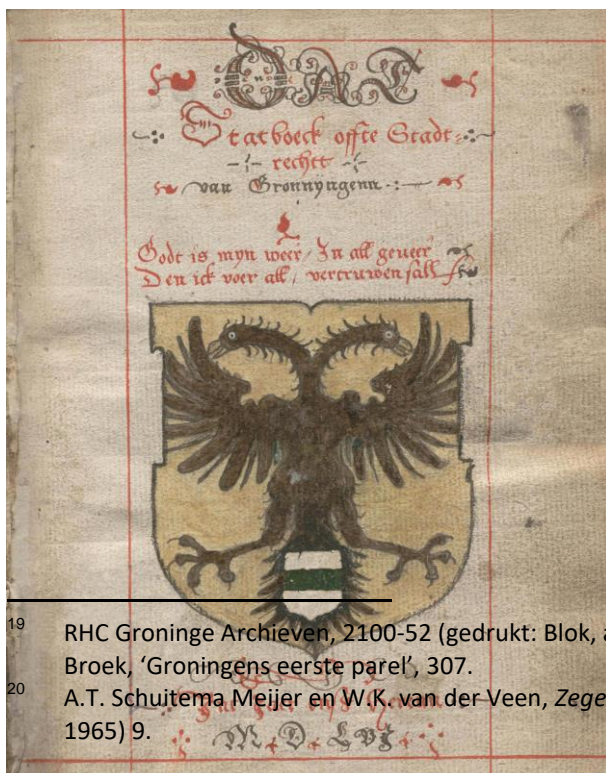 DAT
Statboeck offte Stadt-
rechtt
van Gronnyngenn
Godt is myn weer / In all geueer
Den ick voer all / vertruwen sall
19 RHC Groninge Archieven, 2100-52 (gedrukt: Blok, a
Broek, ‘Groningens eerste parel’, 307.
20 A.T. Schuitema Meijer en W.K. van der Veen, Zege
1965) 9.
M + D + LVI